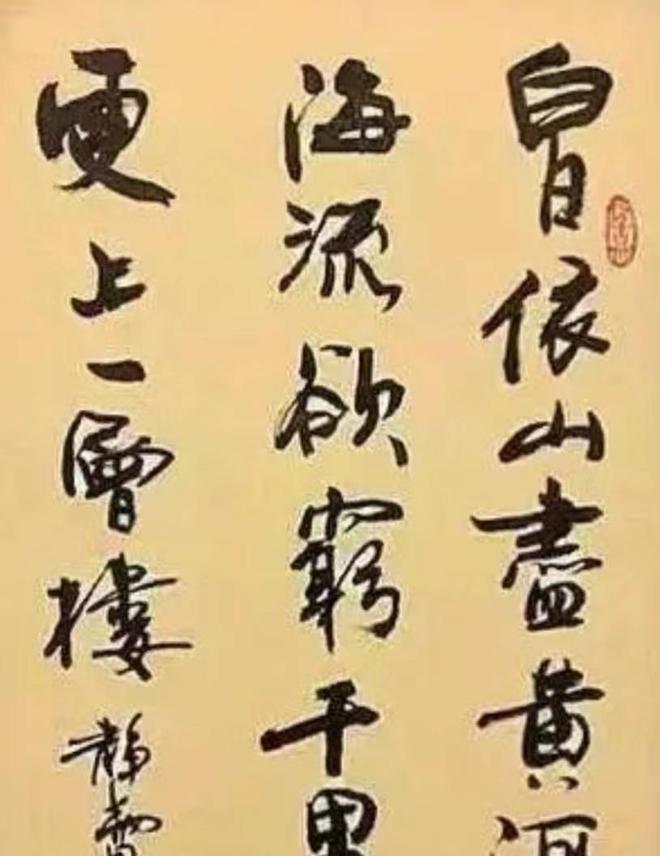 白日依山盡黄河
海流欲窮千里
更上一層樓
静